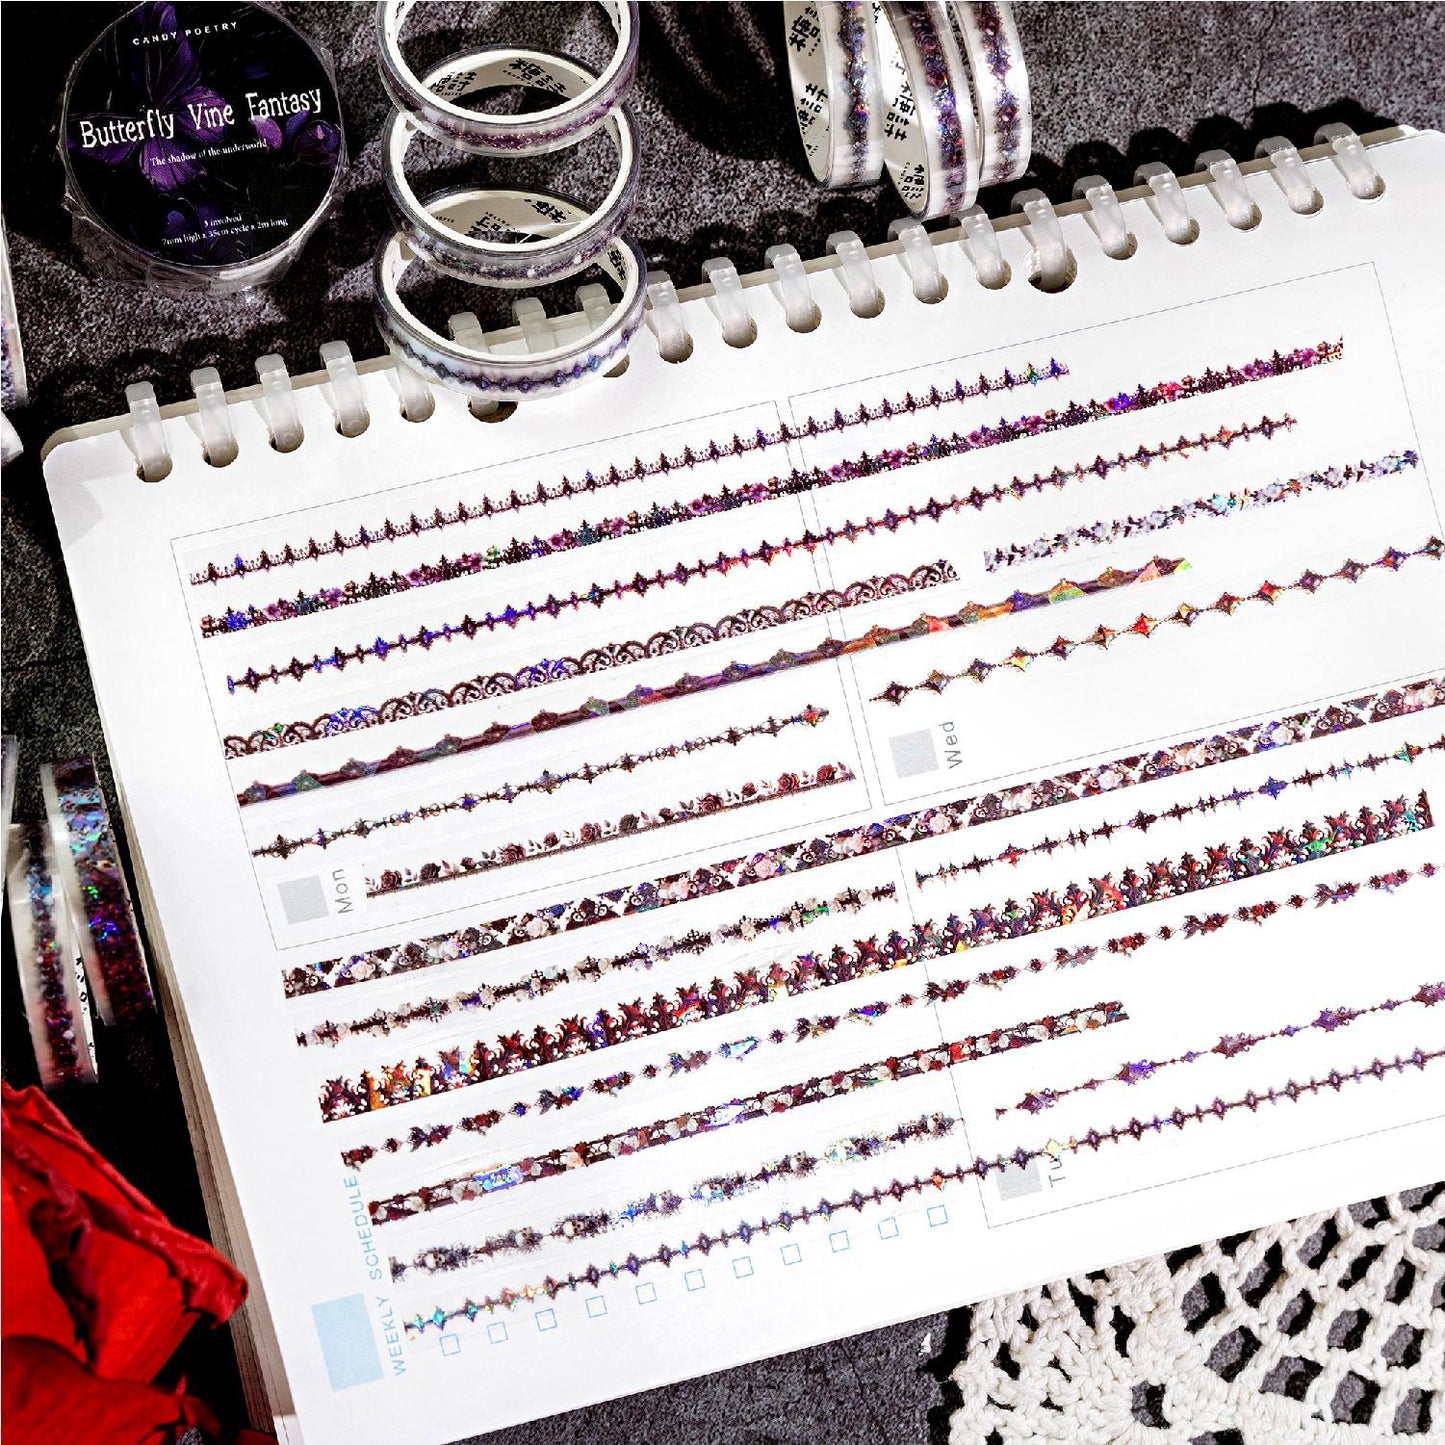 CANDY POETRY
Butterfly Vine Fantasy
The shadow of the underworld
3 involved
7mm high x 35cm cycle x 2m long
Mon
Wed
Tu
WEEKLY SCHEDULE